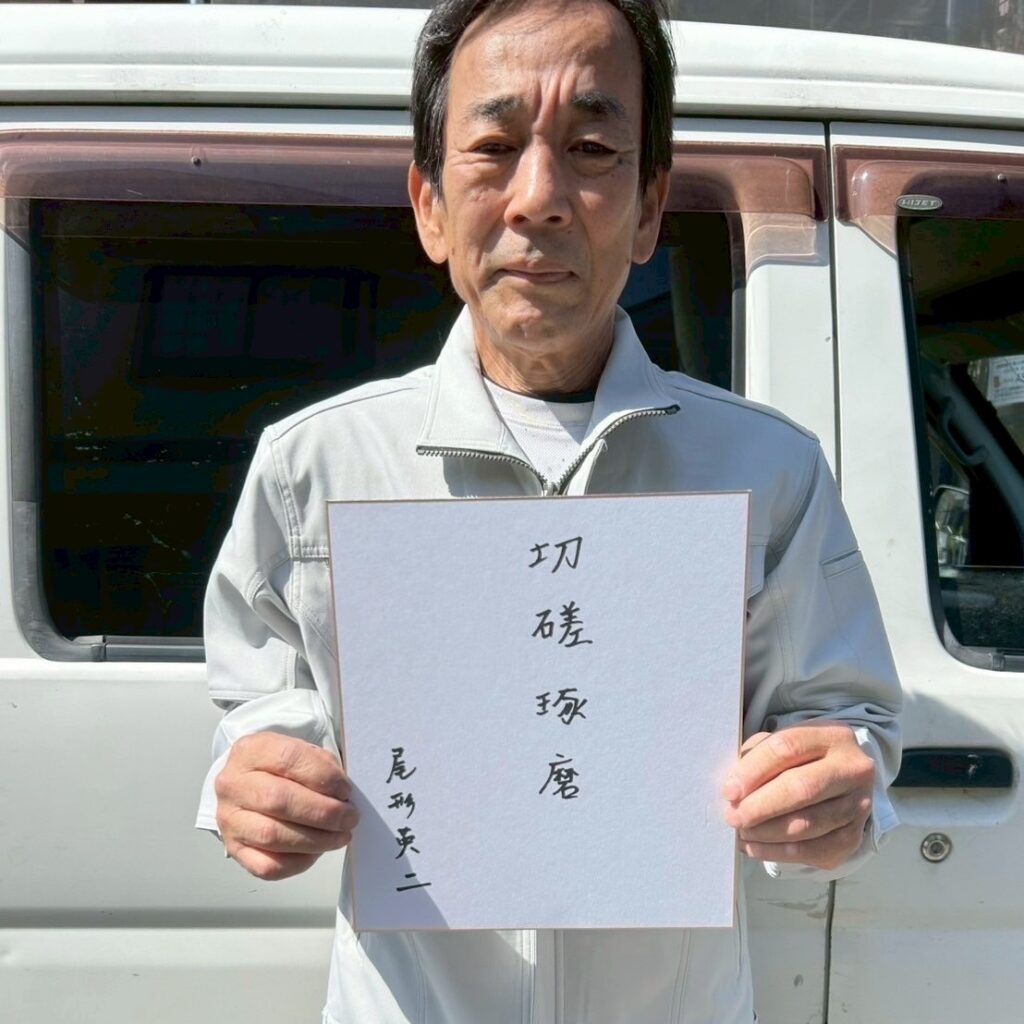 切磋琢磨
尾形英二
HIJET